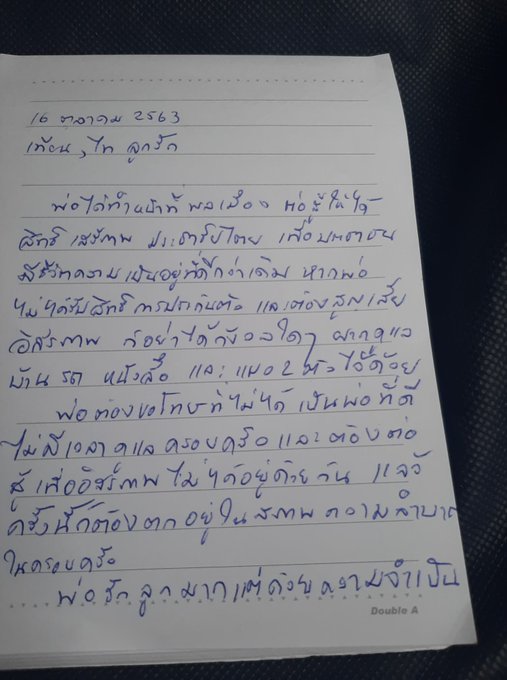 16 ตุลาคม 2563
เทียน, ไท ลูกรัก
พ่อได้ทำหน้าที่พลเมือง ต่อสู้ให้ได้
สิทธิ เสรีภาพ ประชาธิปไตย เพื่อ
มีชีวิตความเป็นอยู่ที่ดีกว่าเดิม หากพ่อ
ไม่ได้รับสิทธิการประกันตัว และต้องสูญเสีย
อิสรภาพ ก็อย่าได้กังวลใดๆ ฝากดูแล
บ้าน รถ หนังสือ และ แมว 2 ตัวไว้ด้วย
พ่อต้องขอโทษที่ไม่ได้เป็นพ่อที่ดี
ไม่มีเวลาดูแลครอบครัวและต้องต่อ
สู้เพื่ออิสรภาพ ไม่ได้อยู่ด้วยกัน แล้ว
ครั้งนี้ก็ต้องตกอยู่ในสภาพความลำบาก
ในครอบครัว
พ่อรักลูกมากแต่ด้วยความจำเป็น
Double A